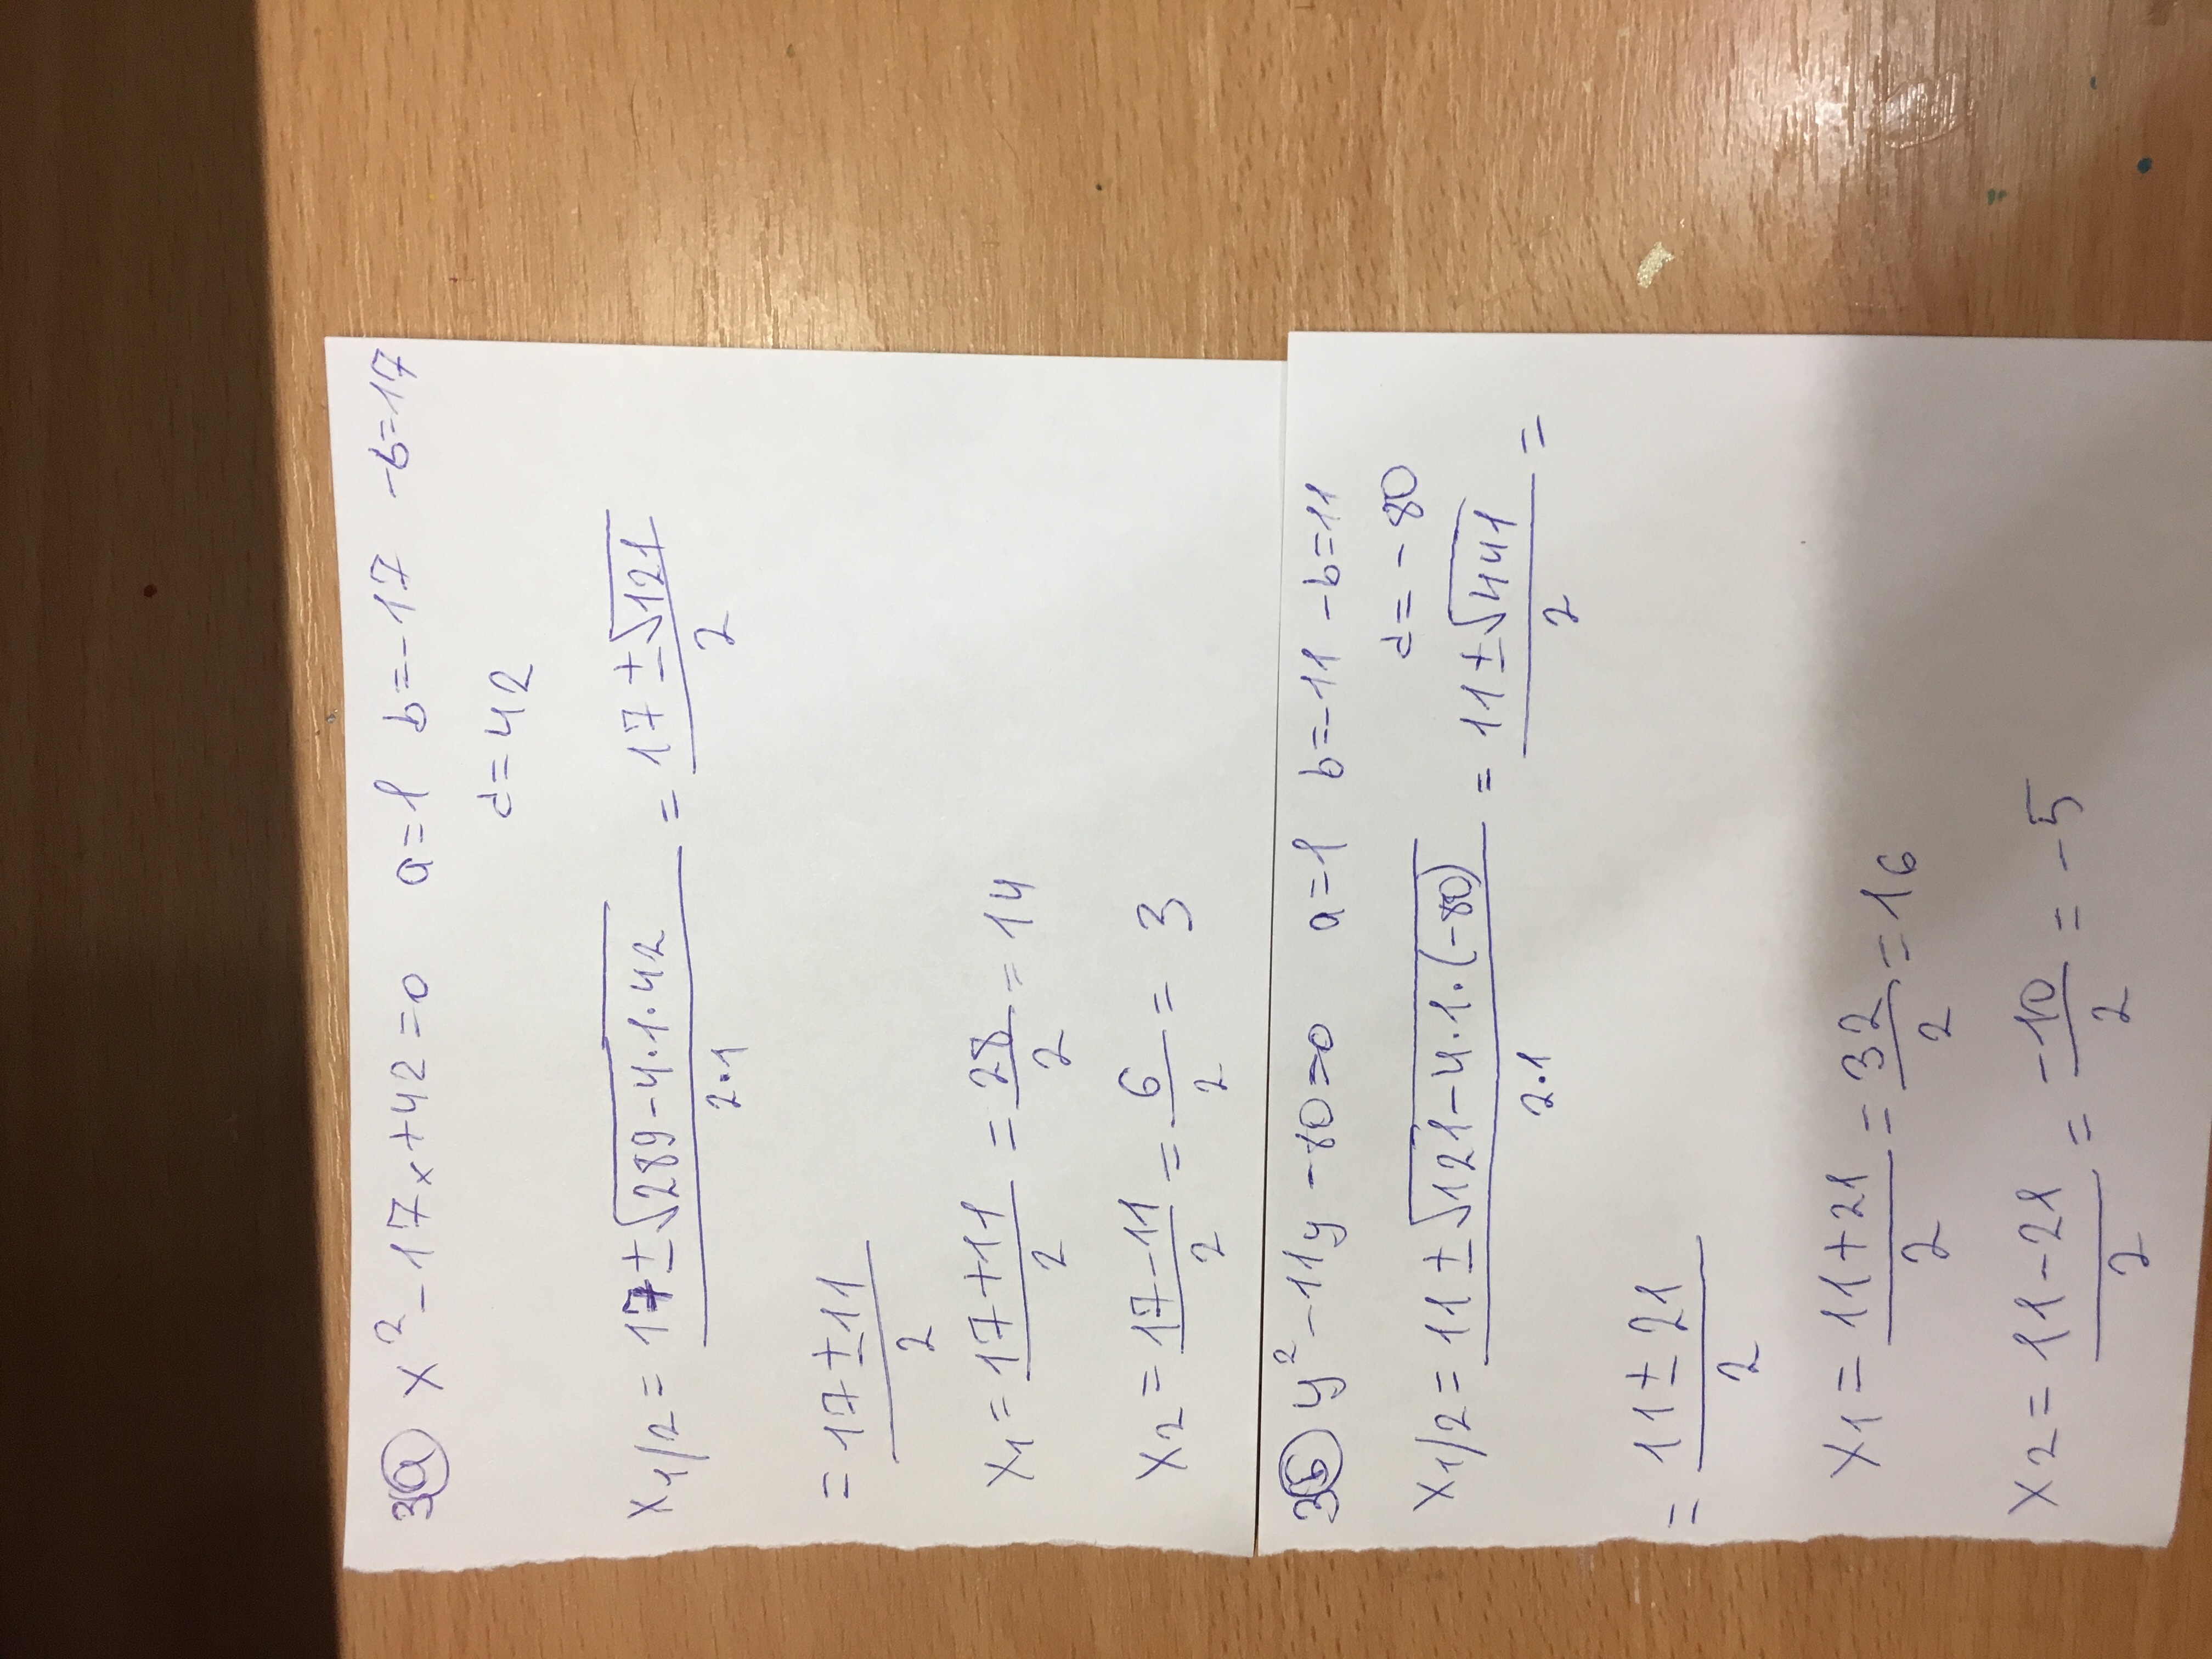 3(a) x² - 17x + 42 = 0 a = 1 b = -17 -b = 17
d = 42
x1/2 = (17 ± √(289 - 4·1·42))/(2·1) = (17 ± √121)/2
= (17 ± 11)/2
x1 = (17 + 11)/2 = 28/2 = 14
x2 = (17 - 11)/2 = 6/2 = 3
3(b) y² - 11y - 80 = 0 a = 1 b = -11 -b = 11
d = -80
x1/2 = (11 ± √(121 - 4·1·(-80)))/(2·1) = (11 ± √441)/2 =
= (11 ± 21)/2
x1 = (11 + 21)/2 = 32/2 = 16
x2 = (11 - 21)/2 = -10/2 = -5